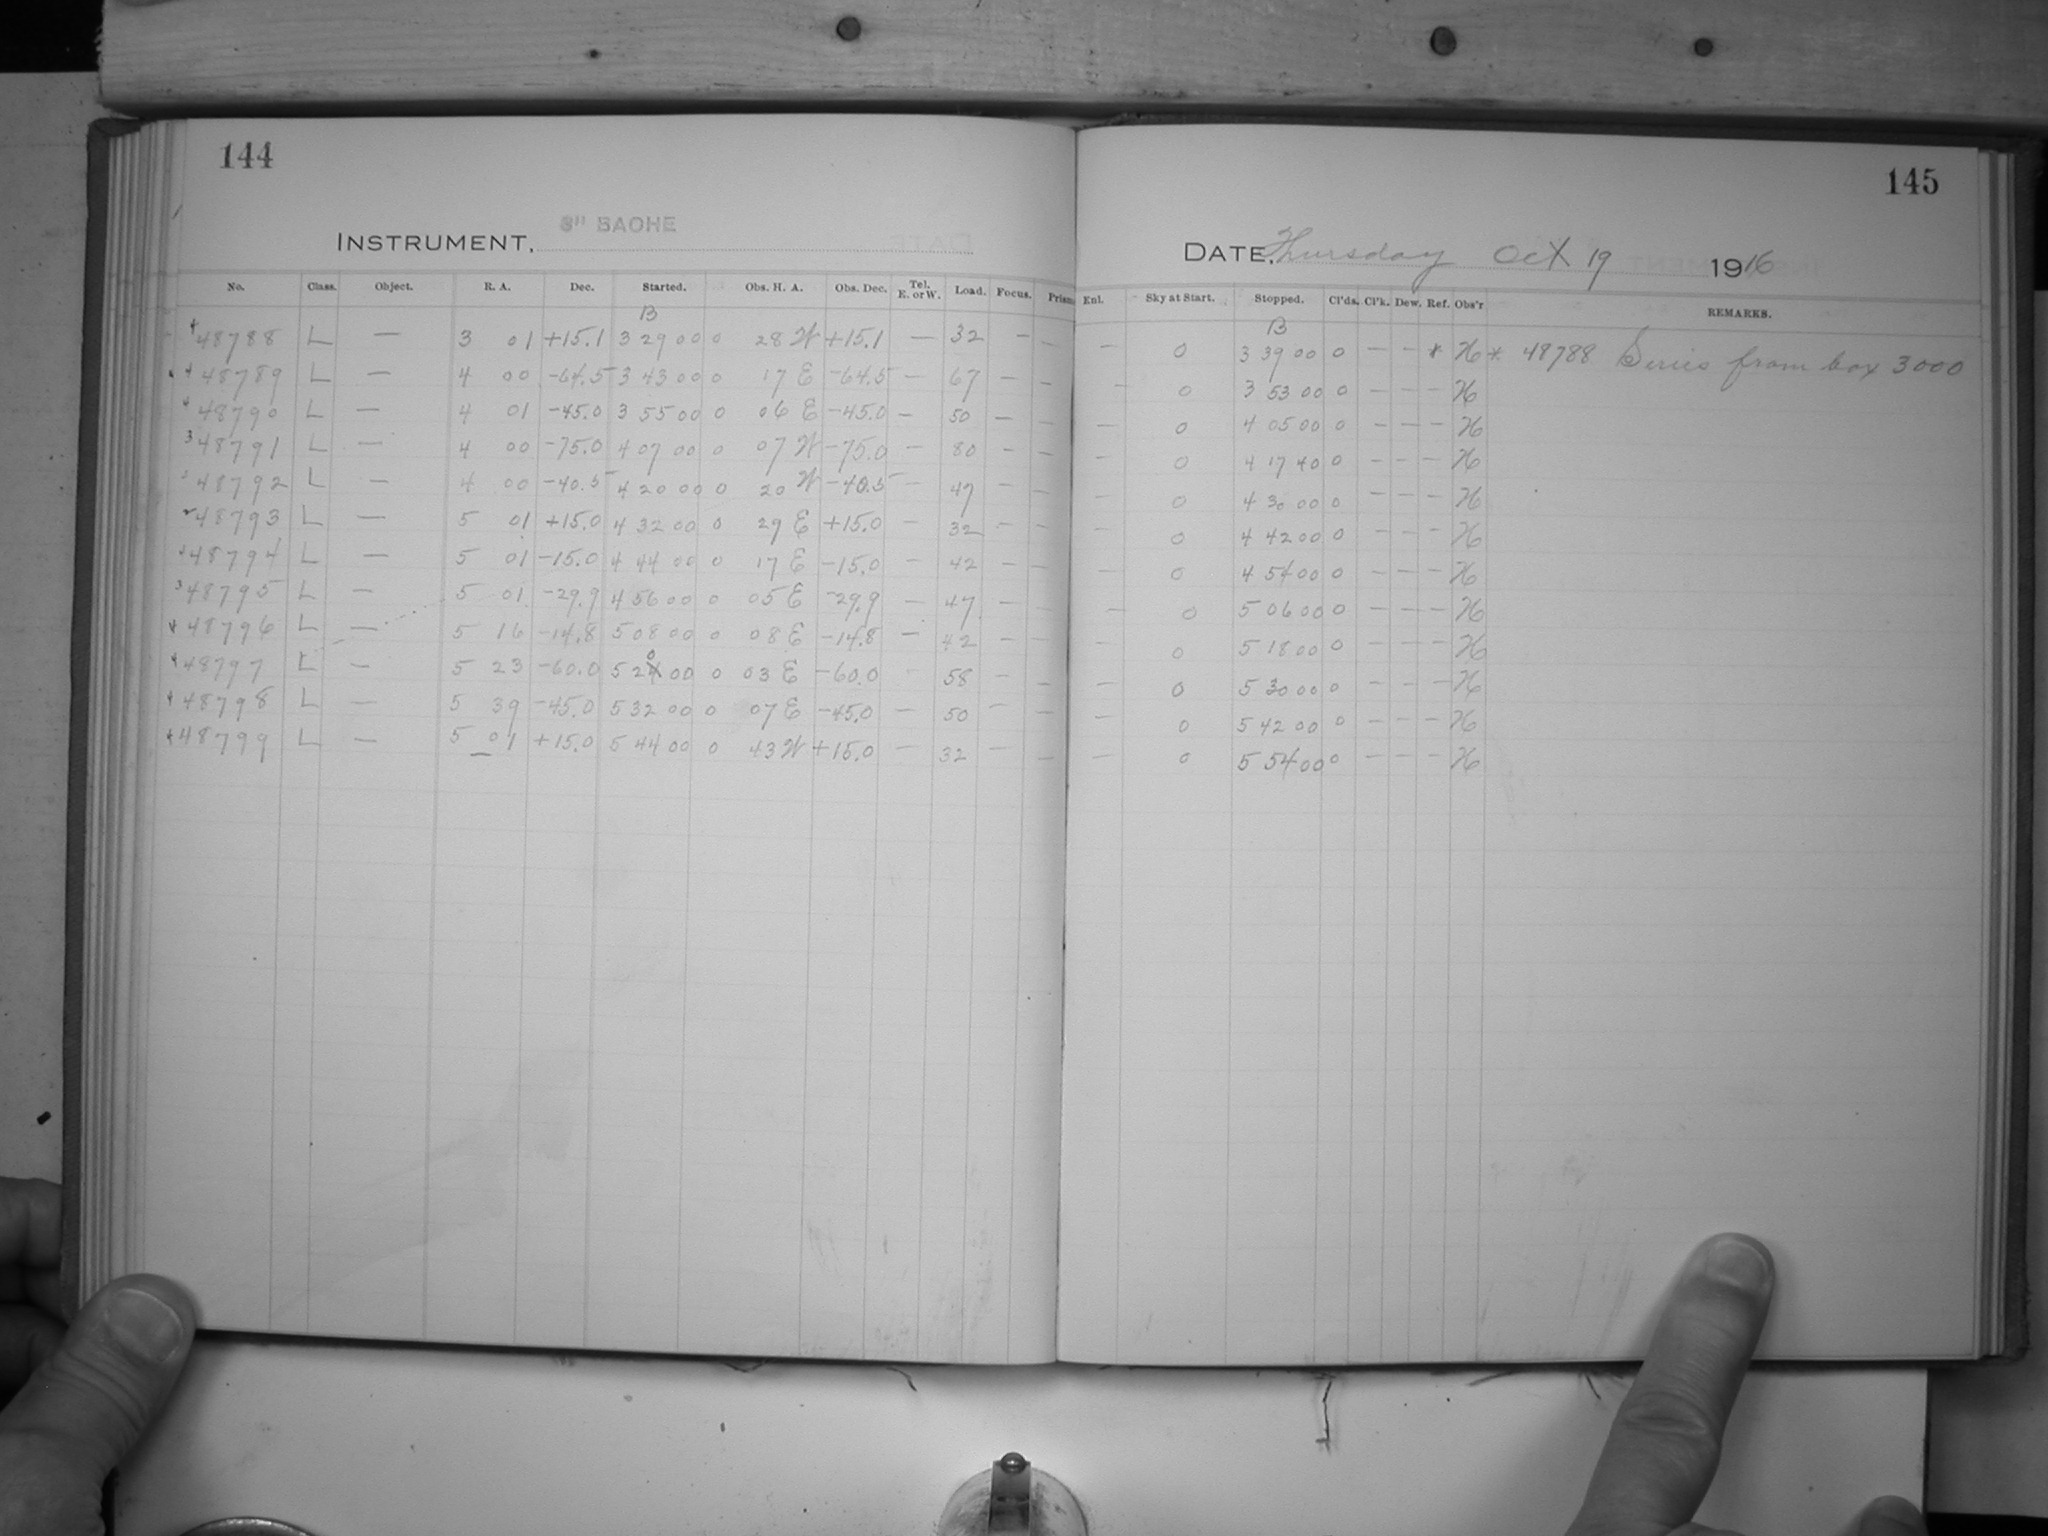 144
INSTRUMENT, 8" BACHE
No. Class. Object. R. A. Dec. Started. Obs. H. A. Obs. Dec. Tel. E. or W. Load. Focus. Prism
B
48788 L — 3 01 +15.1 3 29 00 0 28 W +15.1 — 32 — —
48789 L — 4 00 -64.5 3 43 00 0 17 E -64.5 — 67 — —
48790 L — 4 01 -45.0 3 55 00 0 06 E -45.0 — 50 — —
48791 L — 4 00 -75.0 4 07 00 0 07 W -75.0 — 80 — —
48792 L — 4 00 -40.5 4 20 00 0 20 W -40.5 — 47 — —
48793 L — 5 01 +15.0 4 32 00 0 29 E +15.0 — 32 — —
48794 L — 5 01 -15.0 4 44 00 0 17 E -15.0 — 42 — —
48795 L — 5 01 -29.9 4 56 00 0 05 E -29.9 — 47 — —
48796 L — 5 16 -14.8 5 08 00 0 08 E -14.8 — 42 — —
48797 L — 5 23 -60.0 5 20 00 0 03 E -60.0 — 58 — —
48798 L — 5 39 -45.0 5 32 00 0 07 E -45.0 — 50 — —
48799 L — 5 01 +15.0 5 44 00 0 43 W +15.0 — 32 — —
145
DATE, Thursday Oct 19 1916
Enl. Sky at Start. Stopped. Cl'ds. Cl'k. Dew. Ref. Obs'r REMARKS.
B
— 0 3 39 00 0 — — * H * 48788 Series from box 3000
— 0 3 53 00 0 — — — H
— 0 4 05 00 0 — — — H
— 0 4 17 40 0 — — — H
— 0 4 30 00 0 — — — H
— 0 4 42 00 0 — — — H
— 0 4 54 00 0 — — — H
— 0 5 06 00 0 — — — H
— 0 5 18 00 0 — — — H
— 0 5 30 00 0 — — — H
— 0 5 42 00 0 — — — H
— 0 5 54 00 0 — — — H